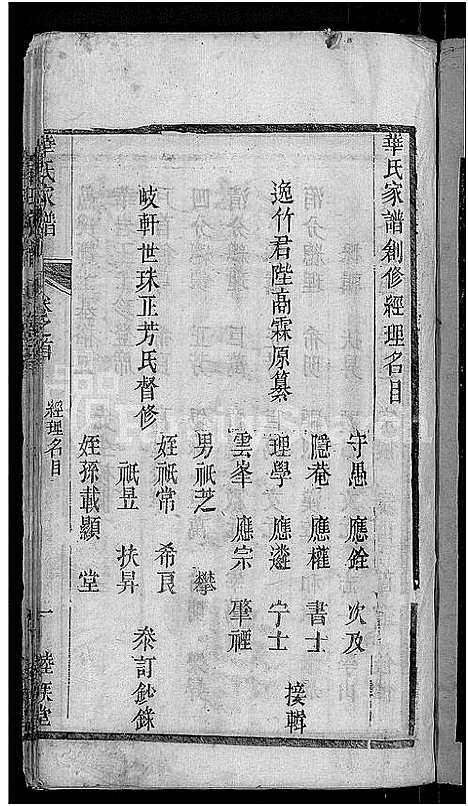 華氏家譜創修經理名目
逸竹君陛高霖原纂
守愚 應銓 次及
隱菴 應權 書士
理學 應遴 宁士
雲峯 應宗 肇禋
接輯
岐軒世珠正芳氏督修
男祇芝 攀
姪祇常 希良
祇昱 扶昇
姪孫載顯 堂
叅訂鈔錄
華氏家譜 卷之首 經理名目 一 睦族堂